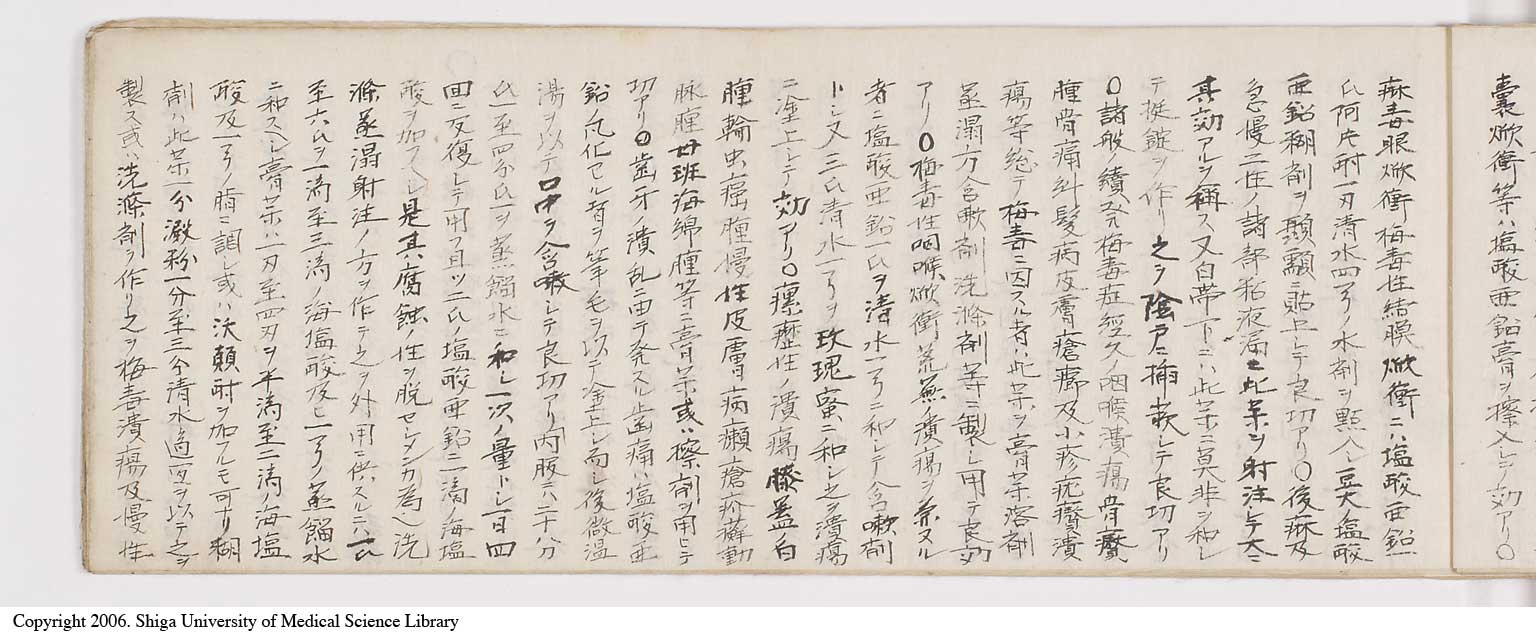 嚢焮衝等ハ塩酸亜鉛膏ヲ擦入レテ効アリ〇
痳毒眼焮衝梅毒性結膜焮衝ニハ塩酸亜鉛一
氏阿片酎一刃清水四ヲノ水剤ヲ點入シ豆大塩酸
亜鉛糊剤ヲ顳顬ニ貼上レテ良切アリ〇後痳及
急慢二性ノ諸部粘液漏ニ此薬ヲ射注レテ大ニ
其効アルヲ稱ス又白帯下ニハ此薬ニ莫非ヲ和レ
テ挺錠ヲ作リ之ヲ陰戸ニ挿萩レテ良切アリ
〇諸般ノ續発梅毒症經久ノ咽喉潰瘍骨癰
腫骨痛糾髪病皮膚瘡瘍及小疹疣贅潰
瘍等総テ梅毒ニ因スル者ハ此薬ヲ膏薬溶剤
蒸溻方含嗽剤洗滌剤等ニ製レ用テ良効
アリ〇梅毒性咽喉焮衝荒蕪ノ潰瘍ヲ兼ヌル
者ニ塩酸亜鉛一氏ヲ清水一ヲニ和レテ含嗽剤
トシ又三氏清水一ヲヲ玫瑰蜜ニ和レ之ヲ潰瘍
ニ塗上レテ効アリ〇瘰癧性ノ潰瘍膝蓋白
腫輪虫癌腫慢性皮膚病癩瘡疥癬動
脉腫母斑海綿腫等ニ膏薬或ハ擦剤ヲ用ヒテ
切アリ〇歯牙ノ潰乱ニ由テ発スル歯痛ハ塩酸亜
鉛瓦化セル者ヲ筆毛ヲ以テ塗上レ而レ後微温
湯ヲ以テ口中ヲ含嗽レテ良切アリ内服ハ二十八分
氏一至四分氏ヲ蒸餾水ニ和レ一次ノ量トレ一日四
回ニ反復レテ用フ且ツ二氏ノ塩酸亜鉛二滴ノ海塩
酸ヲ加スヘレ是其腐蝕性ヲ脱セレメンカ為ヘ洗
滌蒸溻射注ノ方ヲ作テ之ヲ外用ニ供スルニハ一氏
至六氏ヲ一滴至三滴ノ海塩酸及ヒ一ヲノ蒸餾水
ニ和スヘレ膏薬ハ一刃至四刃ヲ半滴至二滴ノ海塩
酸及一ヲノ脂ニ調レ或ハ沃顛酎ヲ加フルモ可ナリ糊
剤ハ此薬一分澱粉一分至三分清水適宜ヲ以テ之ヲ
製ス或ハ洗滌剤ヲ作リ之ヲ梅毒潰瘍及慢性
Copyright 2006. Shiga University of Medical Science Library